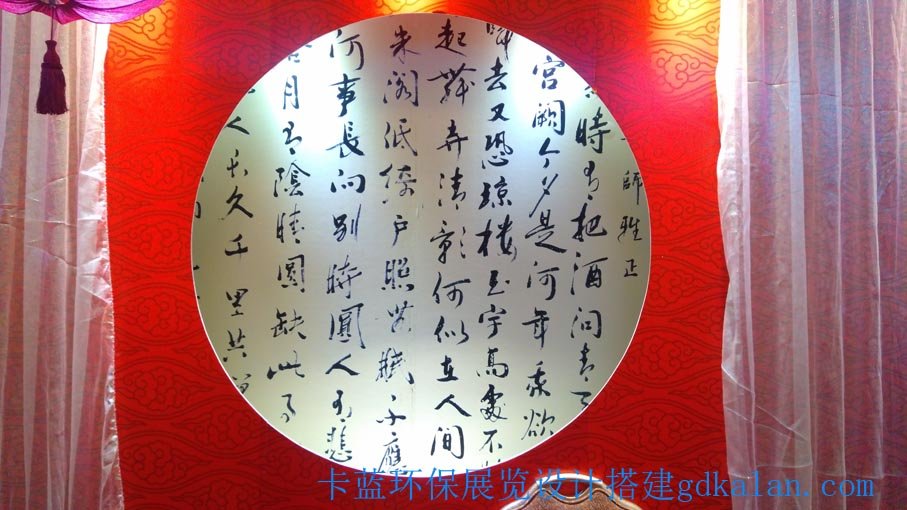 師雅正
時有把酒問青天
宮闕今夕是何年我欲
歸去又恐琼樓玉宇高處不勝
起舞弄清影何似在人間
朱閣低綺戶照無眠不應
何事長向別時圓人有悲
合月有陰晴圓缺此事
人長久千里共
卡蓝环保展览设计搭建gdkalan.com